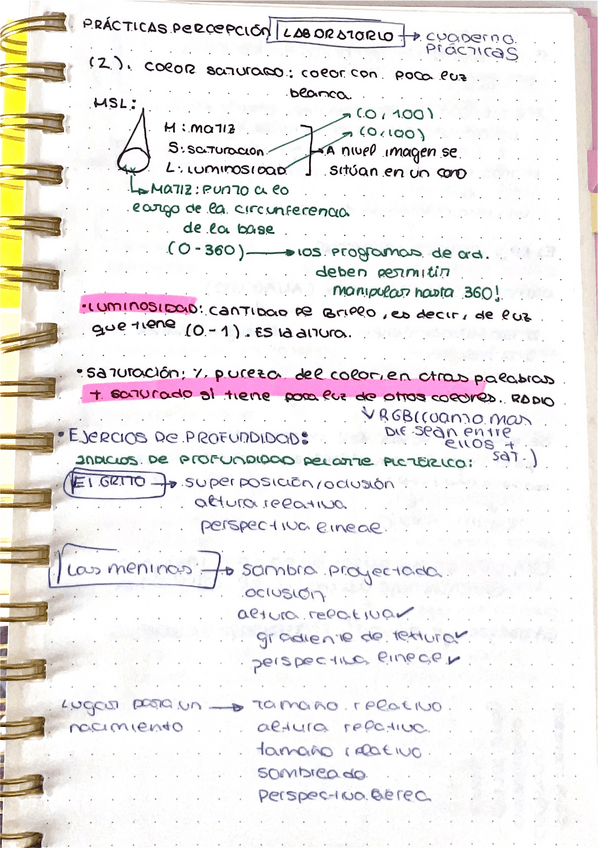 PRÁCTICAS PERCEPCIÓN LABORATORIO → cuaderno
PRÁCTICAS
(2). COLOR SATURADO: COLOR CON POCA LUZ
BLANCA
MSL:
(0,100)
M: MATIZ
(0,100)
S: SATURACIÓN
L: LUMINOSIDAD
A NIVEL IMAGEN SE
SITÚAN EN UN CONO
MATIZ: PUNTO A LO
LARGO DE LA CIRCUNFERENCIA
DE LA BASE
(0-360) → LOS PROGRAMAS DE ORD.
DEBEN PERMITIR
MANIPULAR HASTA 360!
• LUMINOSIDAD: CANTIDAD DE BRILLO, ES DECIR, DE LUZ
QUE TIENE (0-1). ES LA ALTURA.
• SATURACIÓN: % PUREZA DEL COLOR, EN OTRAS PALABRAS
+ SATURADO SI TIENE POCA LUZ DE OTROS COLORES. RADIO
RGB (CUANTO MAS
DIF SEAN ENTRE
ELLOS +
SAT.)
• EJERCIOS DE PROFUNDIDAD:
INDICIOS DE PROFUNDIDAD DEL ARTE PICTÓRICO:
El GRITO → superposición/oclusión
altura relativa
perspectiva lineal
Las meninas → sombra proyectada
oclusión
altura relativa ✓
gradiente de textura ✓
perspectiva lineal ✓
Lugar para un → tamaño relativo
nacimiento altura relativa
tamaño relativo
sombreado
perspectiva aérea